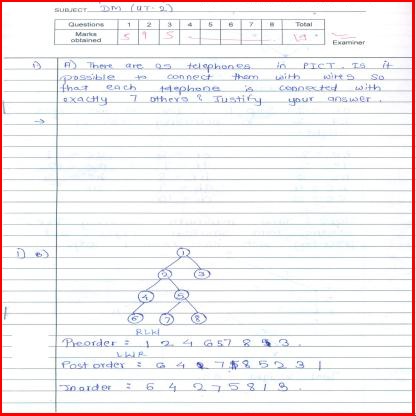 SUBJECT DM (UT-2)
Questions 1 2 3 4 5 6 7 8 Total
Marks obtained 5 9 5 19
Examiner
1) A) There are 25 telephones in PICT. Is it
possible to connect them with wires so
that each telephone is connected with
exactly 7 others? Justify your answer.
→
1) B)
1
2 3
4 5
6 7 8
RLW
Preorder = 1 2 4 6 5 7 8 3.
LWR
Post order = 6 4 7 8 5 2 3 1
Inorder = 6 4 2 7 5 8 1 3.